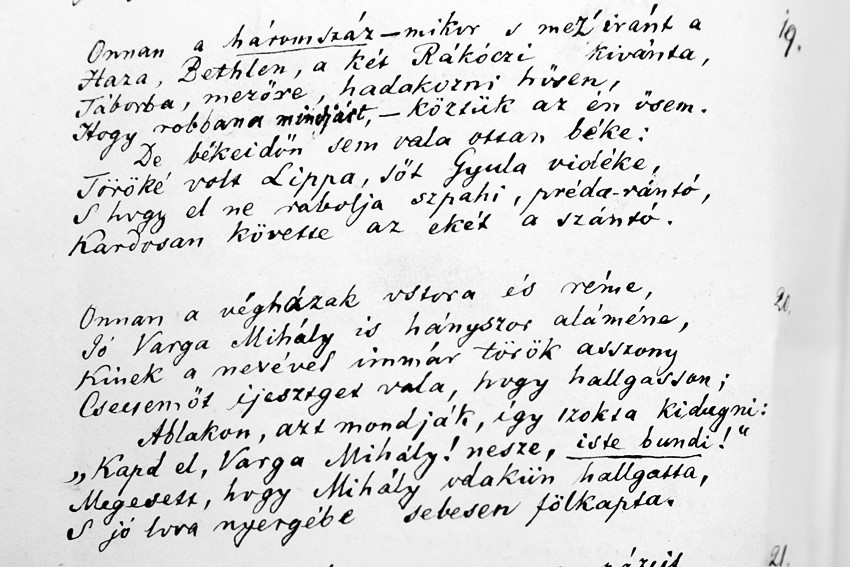 19.
Onnan a háromszáz – mikor s mezz iránt a
Haza, Bethlen, a két Rákóczi kivánta,
Táborba, mezőre, hadakozni hősen,
Hogy robbana mindjárt, – köztük az én ősem.
De békeidőn sem vala ottan béke:
Töröké volt Lippa, sőt Gyula vidéke,
S hogy el ne rabolja szpahi, préda-rántó,
Kardosan követte az ekét a szántó.
20.
Onnan a végházak ostora és réme,
Jó Varga Mihály is hányszor aláméne,
Kinek a nevével immár török asszony
Csecsemőt ijesztget vala, hogy hallgasson;
Ablakon, azt mondják, így szokta kidugni:
„Kapd el, Varga Mihály! nesze, iste bundi!“
Megesett, hogy Mihály odakün hallgatta,
S jó lova nyergébe sebesen fölkapta.
21.